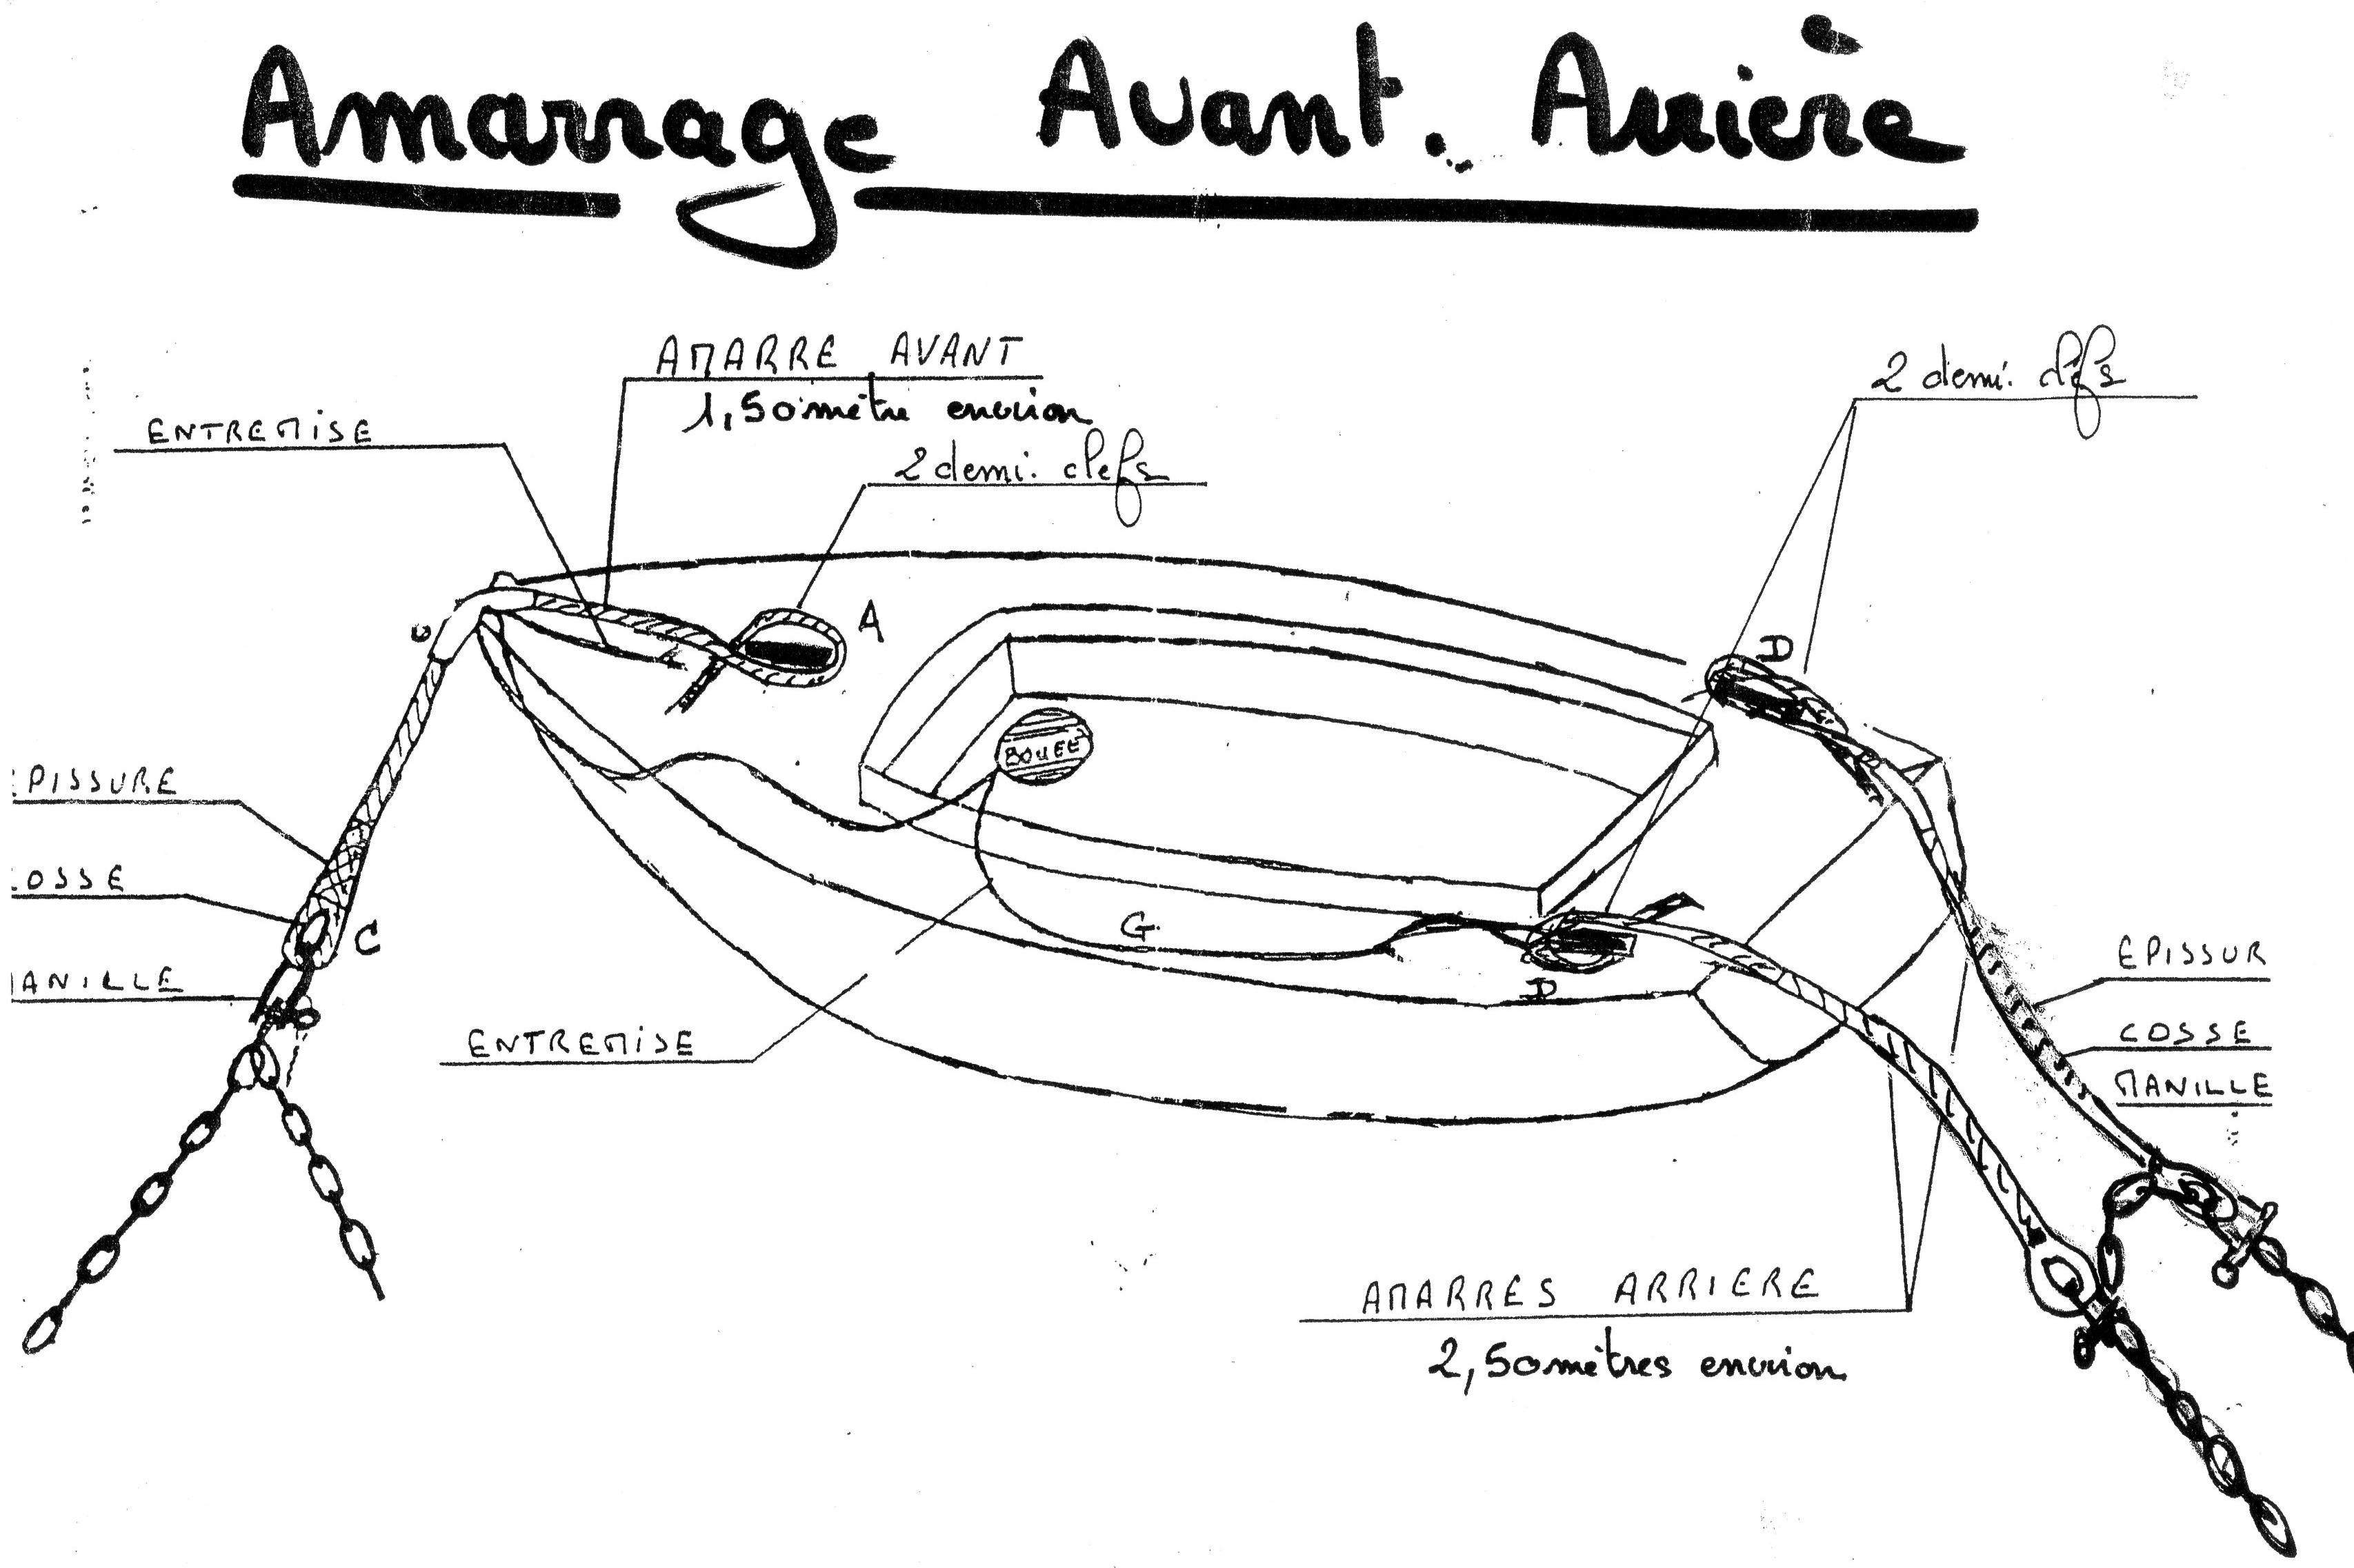 Amarrage Avant. Arrière
AMARRE AVANT
1,50 mètre envrion
ENTREMISE
2 demi. clefs
2 demi. clefs
A
D
BOUEE
PISSURE
OSSE
C
ANILLE
G.
D
ENTREMISE
EPISSUR
COSSE
MANILLE
AMARRES ARRIERE
2,50 mètres envrion